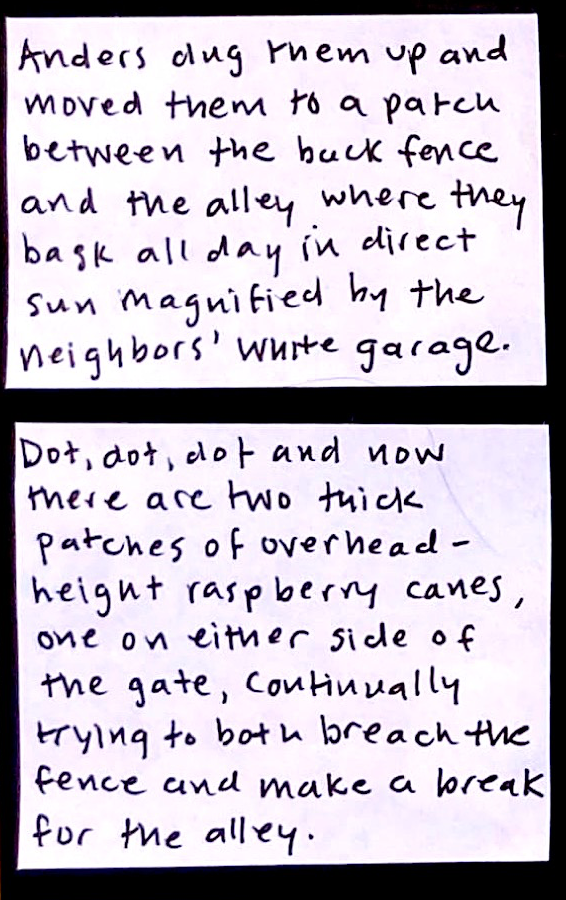 Anders dug them up and
moved them to a patch
between the back fence
and the alley where they
bask all day in direct
sun magnified by the
neighbors' white garage.
Dot, dot, dot and now
there are two thick
patches of overhead-
height raspberry canes,
one on either side of
the gate, continually
trying to both breach the
fence and make a break
for the alley.